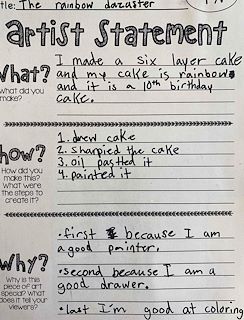 tle: The rainbow dazaster
Artist Statement
What?
What did you
make?
I made a six layer cake
and my cake is rainbow
and it is a 10th birthday
cake.
how?
How did you
make this?
What were
the steps to
create it?
1. drew cake
2. sharpied the cake
3. oil pastled it
4. painted it
Why?
Why is this
piece of art
special? What
does it tell your
viewers?
• first because I am
a good painter.
• second because I am a
good drawer.
• last I'm good at coloring